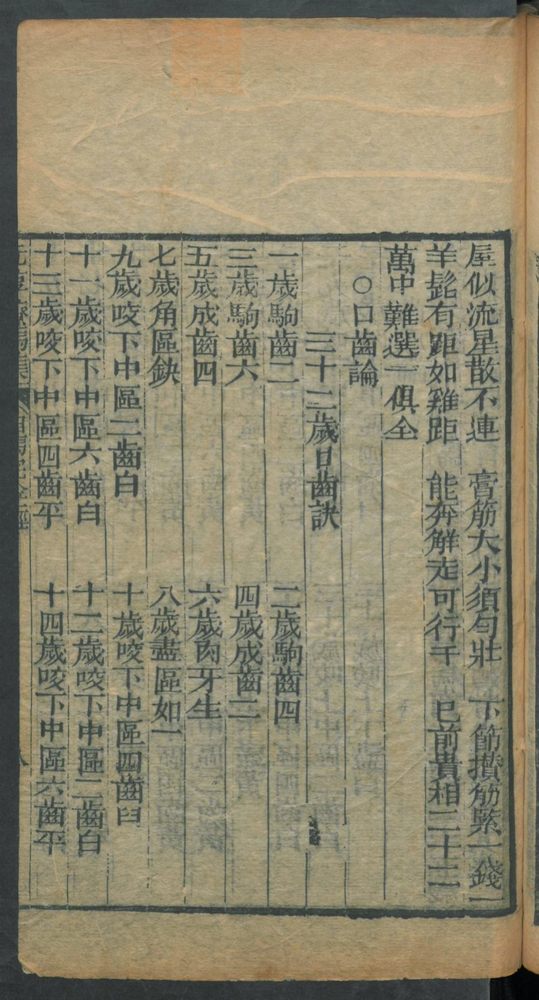 屋似流星散不連　膏筋大小須勻壯　下節攢筋緊一錢一
羊髭有距如雞距　能奔解走可行千　已前貴相三十二
萬中難選一俱全
○口齒論
三十二歲口齒訣
一歲駒齒二　二歲駒齒四
三歲駒齒六　四歲成齒二
五歲成齒四　六歲肉牙生
七歲角區缺　八歲盡區如一
九歲咬下中區二齒白　十歲咬下中區四齒白
十一歲咬下中區六齒白　十二歲咬下中區二齒白
十三歲咬下中區四齒平　十四歲咬下中區六齒平